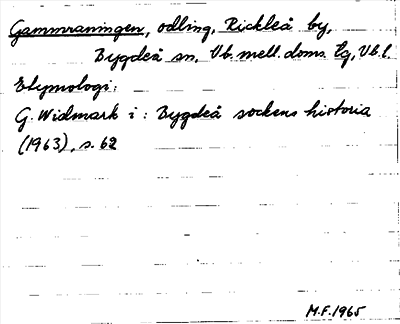 Gammraningen, odling, Rickleå by,
Bygdeå sn, Vb. mell. doms. tg, Vb. l.
Etymologi:
G. Widmark i: Bygdeå sockens historia
(1963), s. 62
M.F. 1965